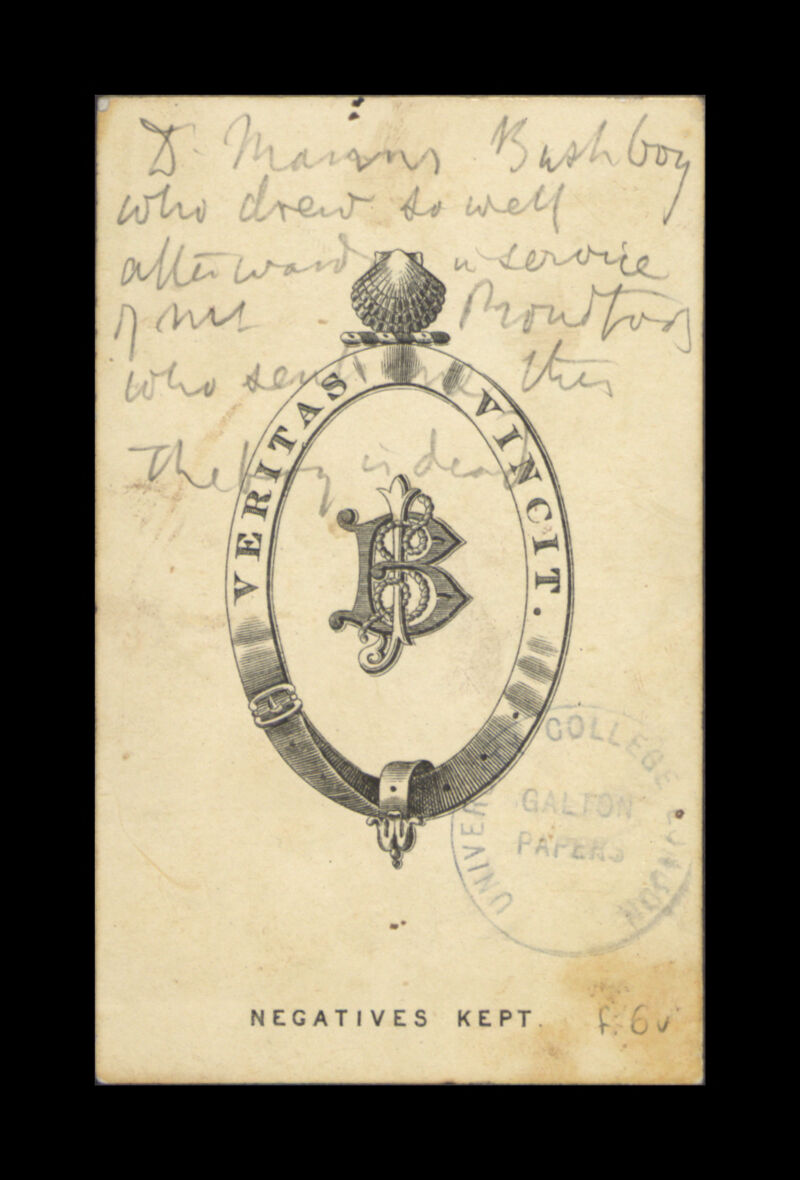 Dr. Manns Bushboy
who drew so well
afterwards in service
of Mr Proudfoot
who sent me this
The boy is dead
VERITAS VINCIT.
B
UNIVERSITY COLLEGE LONDON
GALTON
PAPERS
NEGATIVES KEPT.
f. 6v